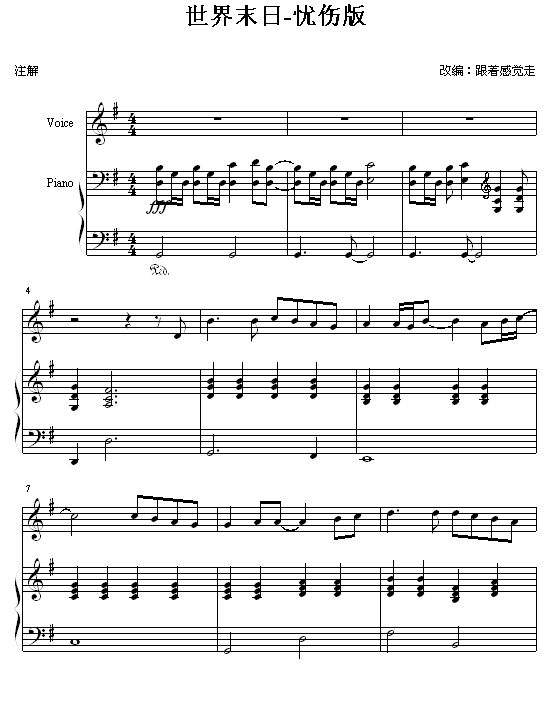 世界末日-忧伤版
注解
改编：跟著感觉走
Voice
Piano
fff
Ped.
4
7